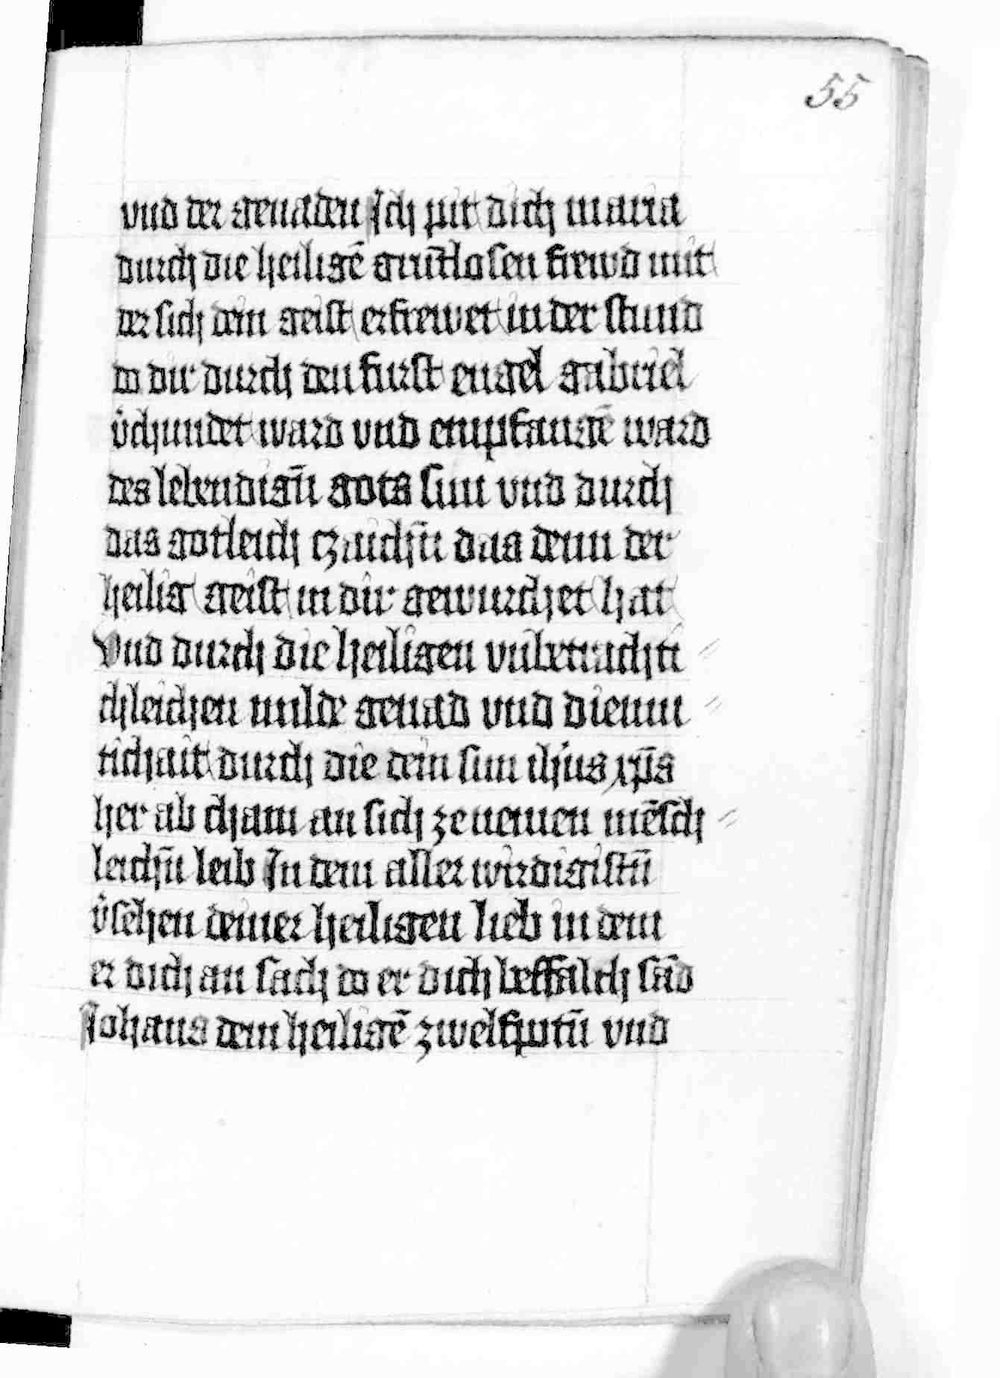 55
vnd der genaden Ich pit dich maria
durch die heiligē grūtlosen frewd mit
der sich dein geist erfrewet in der stund
do dir durch den fürst engel gabriel
v̄chundet ward vnd empfangē ward
des lebendign̄ gots sun vnd durch
das gotleich czaichn̄ das denn der
heilig geist in dir gewurchet hat
Vnd durch die heiligen vnbetrachti
chleichen milde genad vnd diemu
tichait durch die dein sun ih̄us xp̄s
her ab cham an sich ze nemen mēsch
leichn̄ leib In dem aller wirdigistn̄
v̄sehen deiner heiligen lieb in dem
er dich an sach do er dich beffalch sād
Johans dem heiligē zwelfpotn̄ vnd